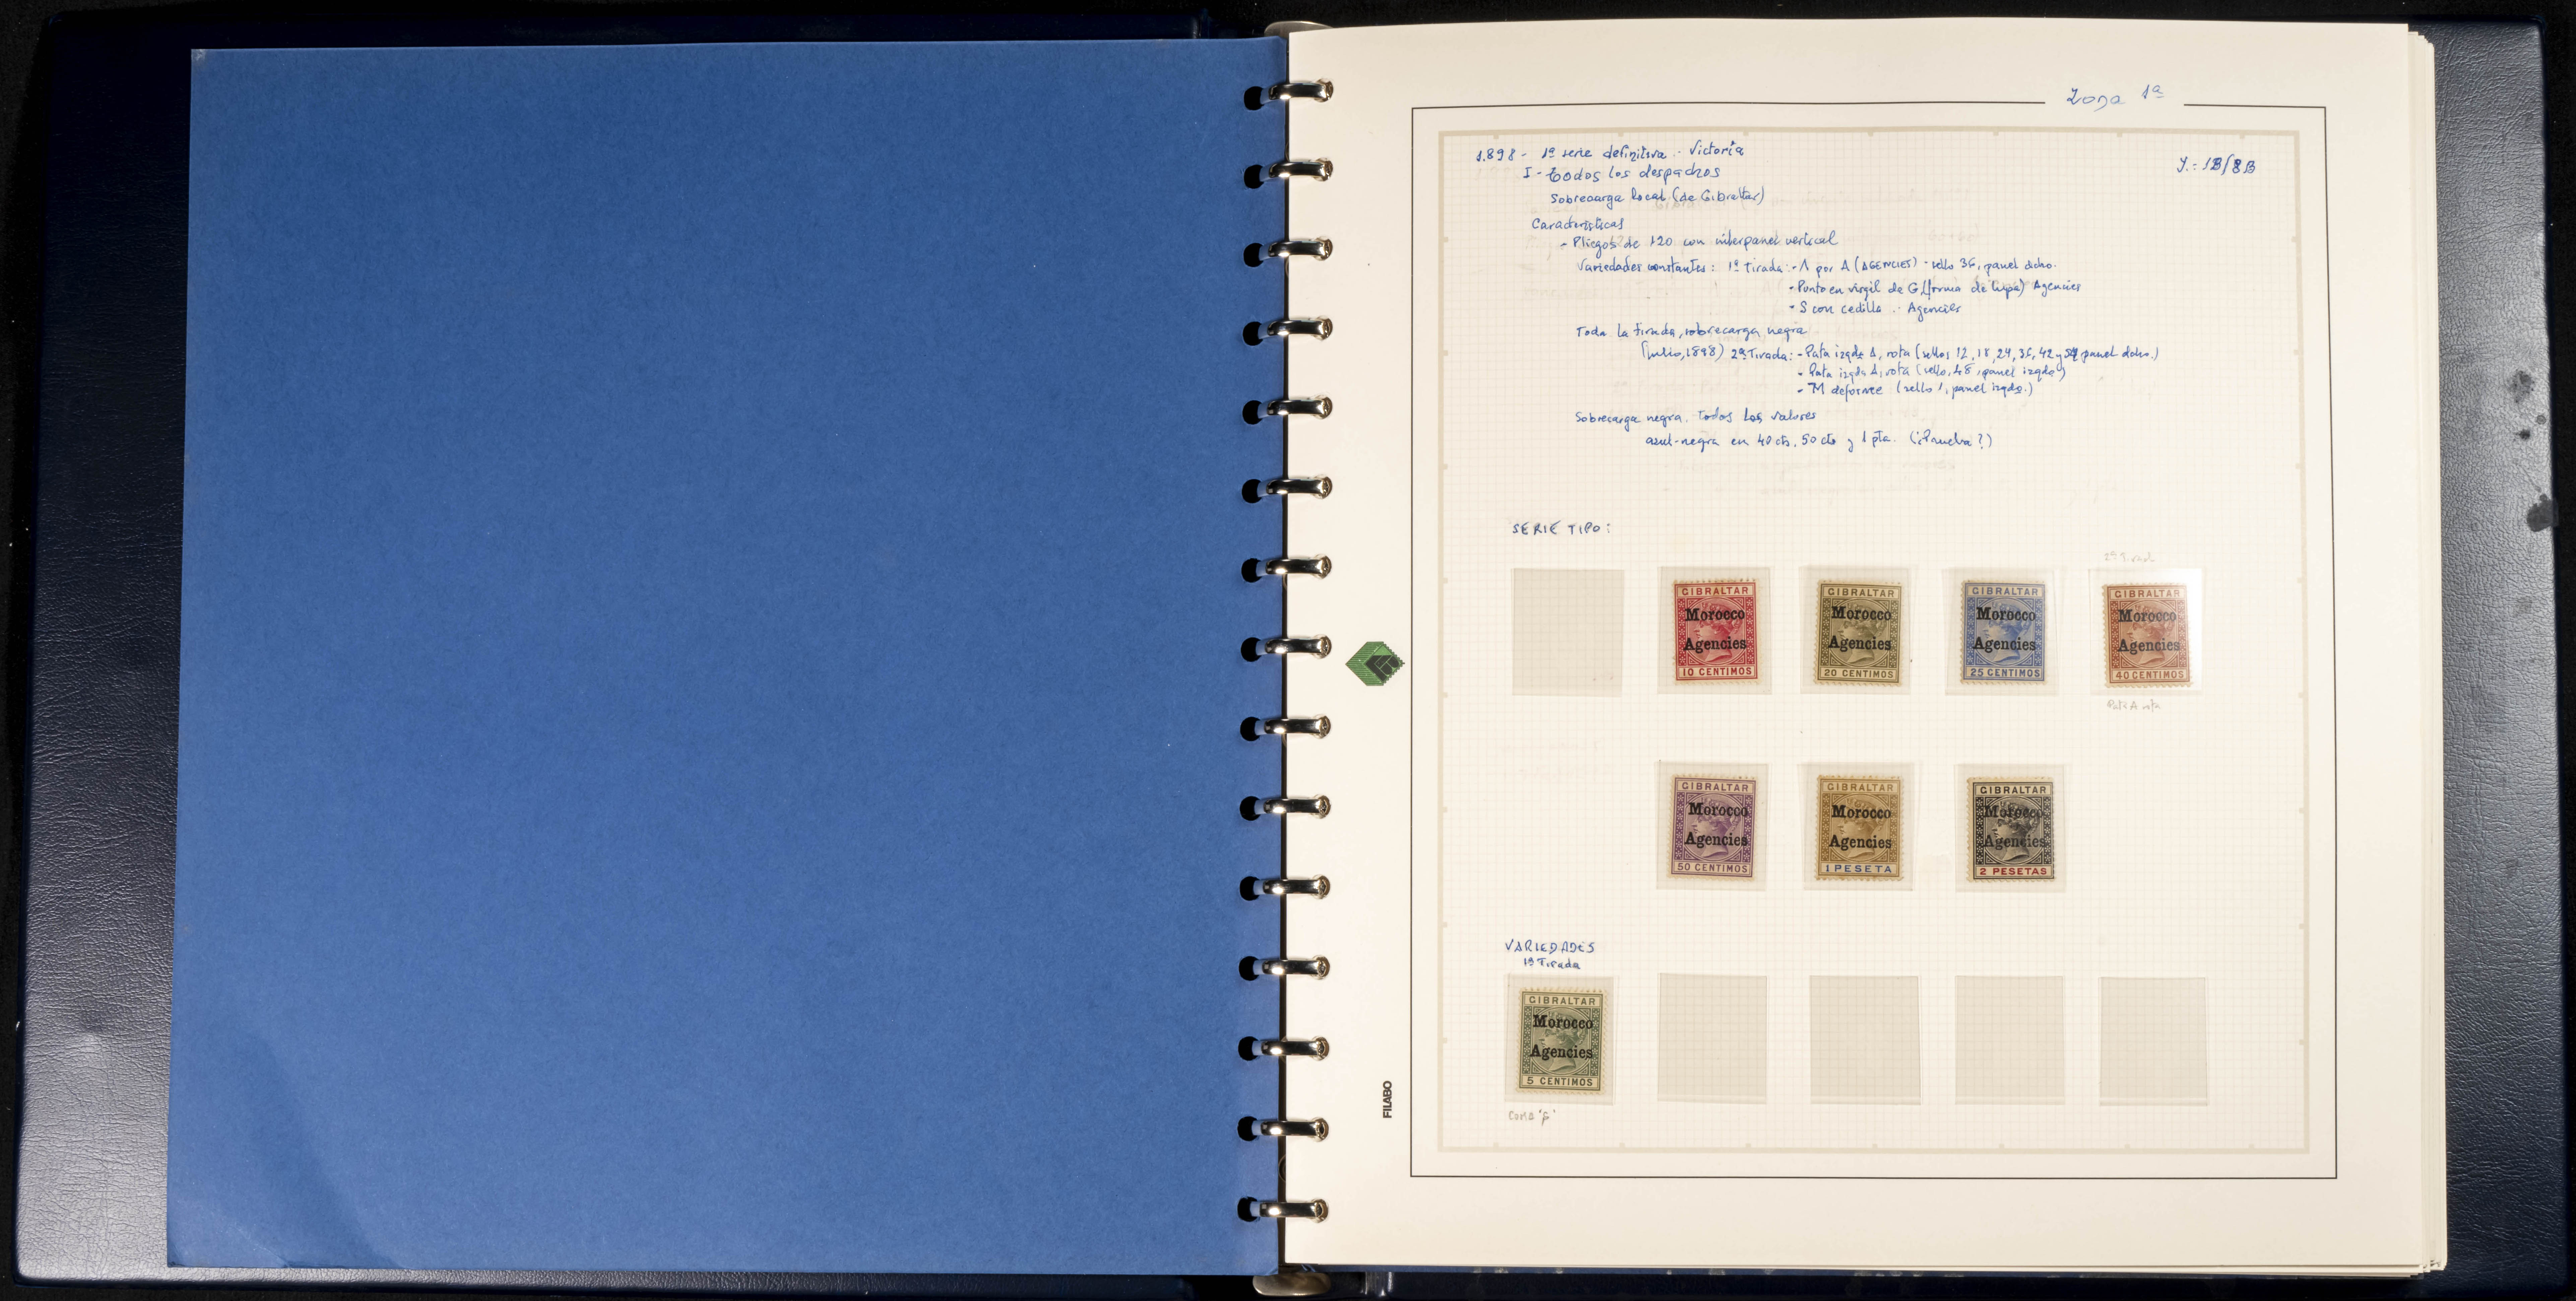 Zona 1ª
1.898 - 1ª serie definitiva.- Victoria
Y.: 1B/8B
I - todos los despachos
Sobrecarga local (de Gibraltar)
Características
- Pliegos de 120 con interpanel vertical
Variedades constantes: 1ª Tirada: - Λ por A (AGENCIES) - sello 36, panel dcho.
- Punto en de G (forma de lupa) Agencies
- S con cedilla .- Agencies
Toda la tirada, sobrecarga negra
(Julio, 1898) 2ª Tirada: - Pata izqda A, rota (sellos 12, 18, 24, 36, 42 y panel dcho.)
- Pata izqda A, rota (sello, 48, panel izqdo)
- M deforme (sello 1, panel izqdo.)
Sobrecarga negra. Todos los valores
azul-negra en 40 cts, 50 cts y 1 pta. (¿Prueba?)
SERIE TIPO:
2ª Tirad.
GIBRALTAR Morocco Agencies 10 CENTIMOS
GIBRALTAR Morocco Agencies 20 CENTIMOS
GIBRALTAR Morocco Agencies 25 CENTIMOS
GIBRALTAR Morocco Agencies 40 CENTIMOS
Pata A rota
GIBRALTAR Morocco Agencies 50 CENTIMOS
GIBRALTAR Morocco Agencies 1 PESETA
GIBRALTAR Morocco Agencies 2 PESETAS
VARIEDADES
1ª Tirada
GIBRALTAR Morocco Agencies 5 CENTIMOS
FILABO